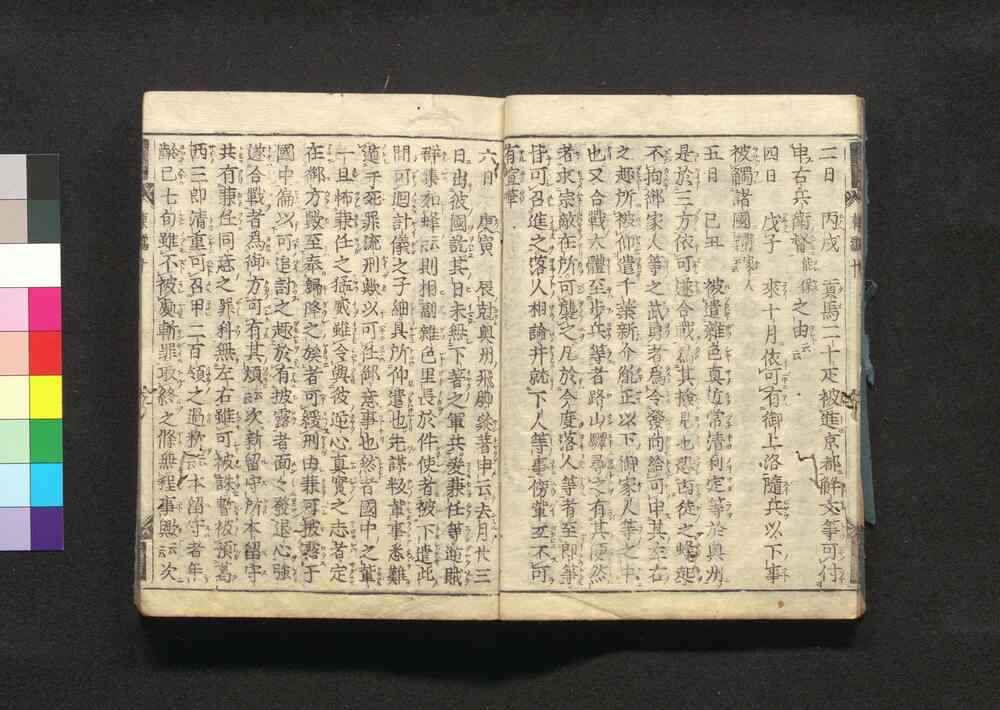 二日　丙戌　貢馬二十疋被進京都解文等可付
申右兵衛督能保之由云云
四日　戊子　來十月依可有御上洛隨兵以下事
被觸諸國御家人云云
五日　己丑　被遣雜色真近常清利定等於奥州
是於三方依可遂合戰為其檢見也忽凶徒之蜂起
不拘御家人等之武勇者為令發向給可申其左右
之趣所被仰遣千葉新介胤正以下御家人等之中
也又合戰大體至歩兵等者路山野尋之有其便然
者求宗敵在所可襲之凡於今度落人等者至即等
皆可召進之落人相論并就下人等事傍輩互不可
有宣嘩
六日　庚寅　辰尅奥州飛脚參著申云去月廿三
日出彼國訖其日未無下著之軍兵爰兼任等逆賊
群集如蜂云云則相副雜色里長於件使者被下遣此
間可廻計儀之子細具所仰遣也先謀叛輩事悉難
遁于死罪流刑歟以可任御意事也然者國中之輩
一旦怖兼任之猛威雖令與彼逆心真實之志者定
在御方歟至奉歸降之族者可緩刑由兼可披露于
國中偏以可追討之趣於有披露者面々發退心強
遂合戰者為御方可有其煩云云次新留守所本留守
共有兼任同意之罪科無左右雖可被誅暫被預葛
西三郎清重可召甲二百領之過料云云本留守者年
齡已七旬雖不被處斬罪取終之條無程事歟云云次